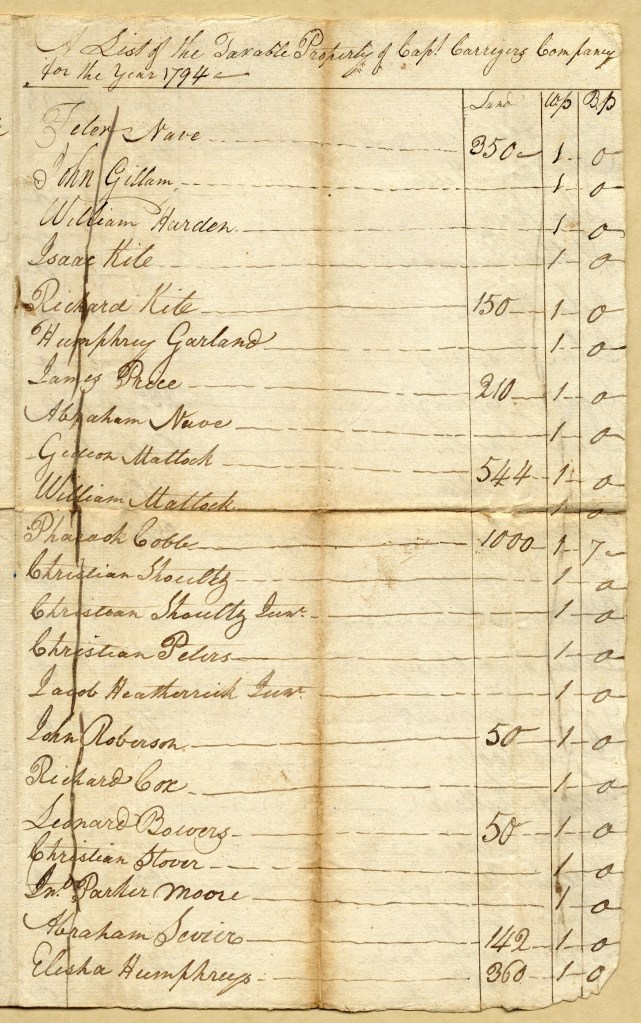 A List of the Taxable Property of Capt. Carregers Company
for the Year 1794
Land W/p B/p
Peter Nave 350 1 0
John Gillam 1 0
William Harden 1 0
Isaac Kite 1 0
Richard Kite 150 1 0
Humphrey Garland 1 0
James Price 210 1 0
Abraham Nave 1 0
Gideon Mattock 544 1 0
William Mattock 1 0
Pharaoh Cobb 1000 1 7
Christian Shoultz 1 0
Christean Shoultz Junr. 1 0
Christian Peters 1 0
Jacob Heatherrick Junr. 1 0
John Roberson 50 1 0
Richard Cox 1 0
Leonard Bowers 50 1 0
Christian Stover 1 0
Jno. Parker Moore 1 0
Abraham Sevier 142 1 0
Elisha Humphreys 360 1 0